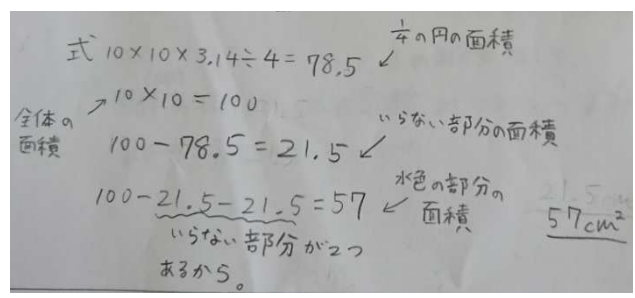 式 10×10×3.14÷4=78.5 ↙ 1/4の円の面積
全体の面積 ↗ 10×10=100
100-78.5=21.5 ↙ いらない部分の面積
100-21.5-21.5=57 ↙ 水色の部分の面積
いらない部分が2つ
あるから。
57cm²